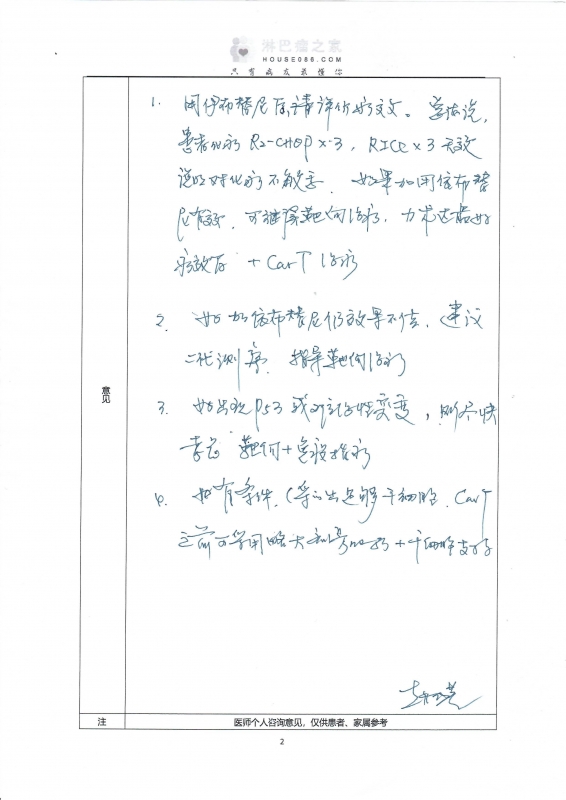 淋巴瘤之家
HOUSE086.COM
只有病友最懂你
1. 用伊布替尼后,请评价疗效。总体说,
患者化疗 R2-CHOP×3, RICE×3 无效
说明对化疗不敏感. 如果加用依布替
尼有效. 可继续靶向治疗, 力求达最好
疗效后 + CarT 治疗
2. 如加依布替尼仍效果不佳, 建议
二代测序. 指导靶向治疗
意见
3. 如出现 P53 或 变, 则尽快
靶向+免疫
4. 如有条件, ( 出足够干细胞. CarT
之前可 用 大剂量 + 干细胞支持
注
医师个人咨询意见，仅供患者、家属参考
2